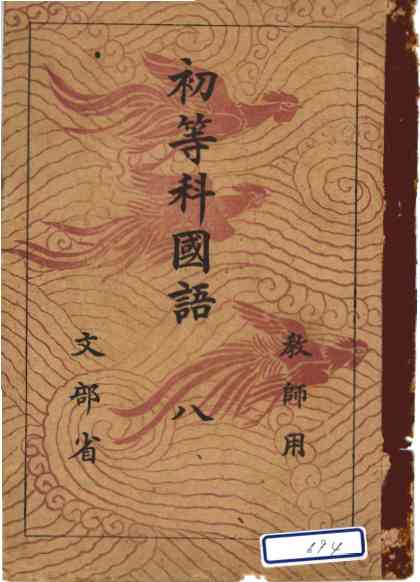 教師用
初等科國語 八
文部省
694